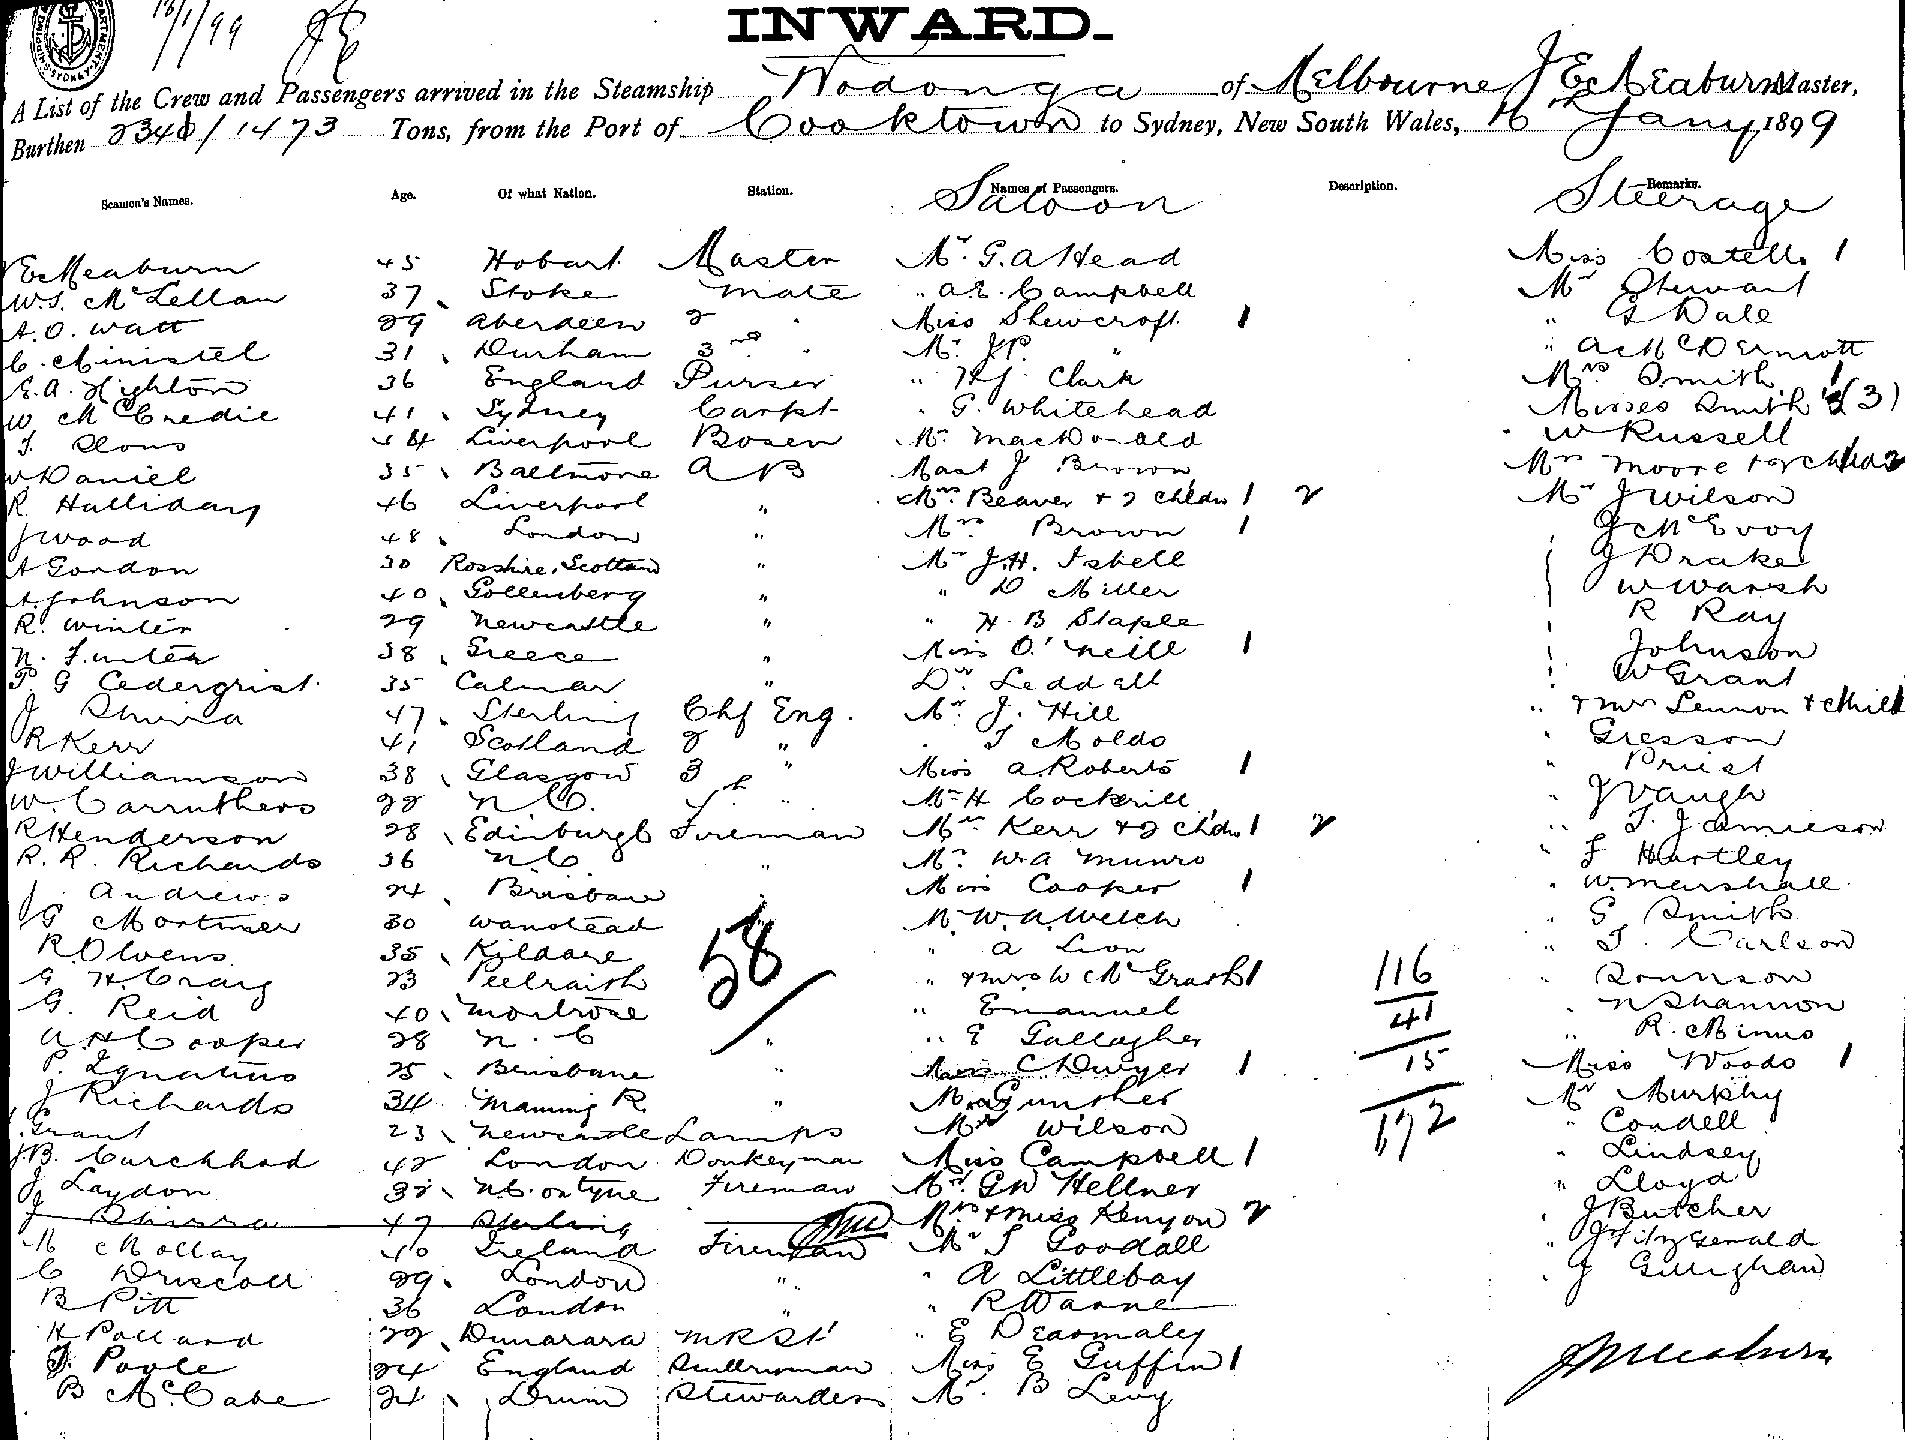 INWARD.
16/1/99
A List of the Crew and Passengers arrived in the Steamship Wodonga of Melbourne J E Meaburn Master,
Burthen 2341/1473 Tons, from the Port of Cooktown to Sydney, New South Wales, 16th Jany 1899
Seamen's Names. Age. Of what Nation. Station. Names of Passengers. Description. Remarks.
Saloon Steerage
JE Meaburn 45 Hobart Master Mr. G. A Head Miss Costello 1
W.S. McLellan 37 Stoke Mate " A.E. Campbell Mr Stewart
A. O. Watt 29 Aberdeen 2 " Miss Shewcroft 1 " G Dale
C. Ministel 31 Durham 3rd " Mr. J.P. " " A McDermott
E. A. Highton 36 England Purser " H J Clark Mrs Smith 1
W McCredie 41 Sydney Carpt " G. Whitehead Misses Smith (3)
T. Sloms 44 Liverpool Bosen Mr. MacDonald W Russell
W Daniel 35 Baltmore A B Mast J Brown Mrs Moore + 2 Childn 2
R Halliday 46 Liverpool " Mrs Beaver + 2 Childn 1 2 Mr J Wilson
J Wood 48 London " Mrs Brown 1 J McEvoy
A Gordon 30 Rosshire, Scotland " Mr J.H. Isbell J Drake
A. Johnson 40 Gollenberg " " D Miller W Warsh
R. Winter 29 Newcastle " " H. B Staple R Ray
N. 38 Greece " Miss O'Neill 1 Johnson
P G Cedergrist 35 Calmar " Dr. Leddell W Grant
J Shirra 47 Sterling Chf Eng. Mr. J. Hill " + Mrs Lennon + Child
R Kerr 41 Scotland 2 " T Molds " Gresson
J Williamson 38 Glasgow 3 " Miss A. Roberts 1 " Priest
W. Carruthers 22 N C. 4th " Mr H Cockrill " J Vaugh
R Henderson 28 Edinburgh Fireman Mrs Kerr + 2 Chdn 1 2 " T. Jamieson
R. R. Richards 36 N C " Mr. W. A Munro " F Hartley
J. Andrews 24 Brisbane Miss Cooper 1 " W. Marshall
G Mortimer 30 Wanstead Mr. W. A. Welch " G Smith
R. Owens 35 Kildare " A Lion " T. Carlson
G H. Craig 23 " + Mrs W McGrath 1 "
G. Reid 40 Montrose " Emanuel " N Shannon
A H Cooper 28 N. C " " E Gallagher " R. Minus
P. Ignatius 25 Brisbane " Miss C Dwyer 1 Miss Woods 1
J Richards 34 Manning R. " Mr. Gunther Mr Murphy
Grant 23 Newcastle Lamps Mr Wilson " Condell
J.B. Carchhad 42 London Donkeyman Miss Campbell 1 " Lindsey
J Laydon 32 N C. on Tyne Fireman Mr. G W Hellner " Lloyd
J Shirra 47 Sterling Mrs + Miss Kenyon 2 " J Butcher
M Mollay 40 Ireland Fireman Mr T Goodall " J Fitzgerald
C Driscoll 29 London " " A Littlebay " J Gillighan
B Pitt 36 London " " R Warne
H Pollard 22 Dunarara M R St " E Deasmaley
J. Poole 24 England Scullryman Miss E Guffin 1
B McCabe 24 Drum Stewardess Mr. B Levy
58
116
41
15
172
JE Meaburn